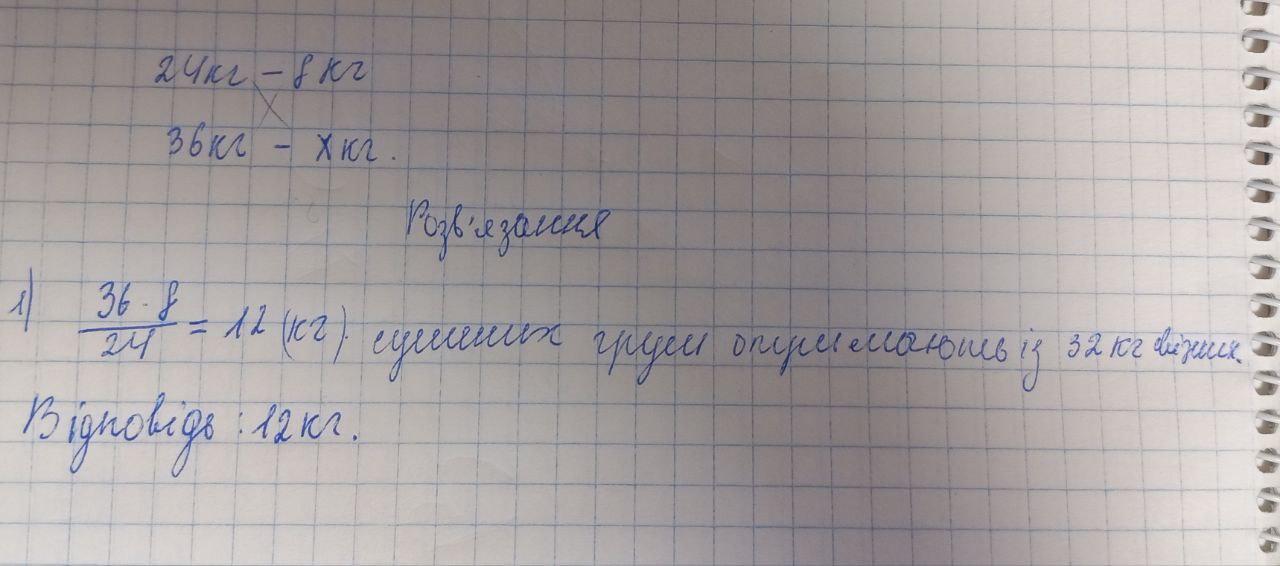 24кг – 8кг
36кг – x кг.
Розв'язання
1) 36 · 8 / 24 = 12 (кг). сушених груш отримають із 32 кг свіжих.
Відповідь: 12кг.